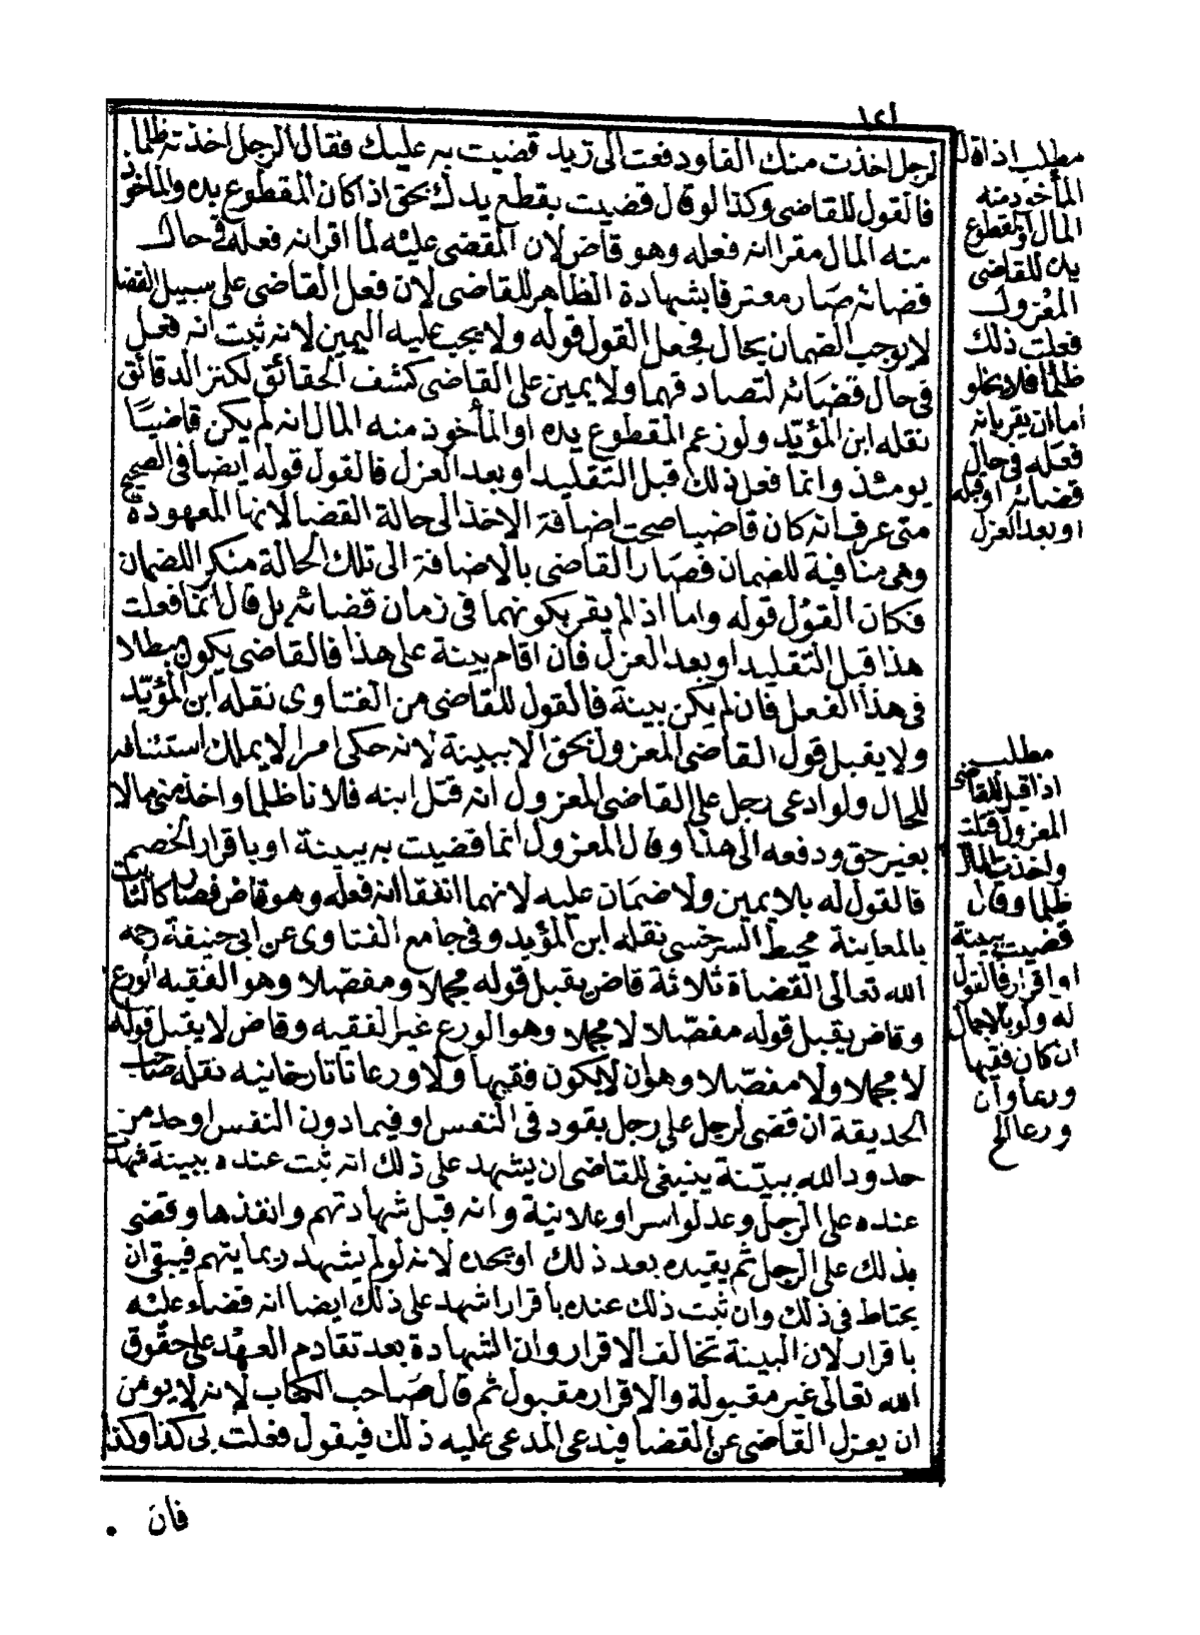 لرجل اخذت منك الفا ودفعت الى زيد قضيت به عليك فقال الرجل اخذته ظلما
فالقول للقاضى وكذا لو قال قضيت بقطع يدك بحق اذا كان المقطوع يده والمأخوذ
منه المال مقرا انه فعله وهو قاض لان المقضى عليه لما اقر انه فعله فى حال
قضائه صار معترفا بشهادة الظاهر للقاضى لان فعل القاضى على سبيل القضا
لا يوجب الضمان بحال فجعل القول قوله ولا يجب عليه اليمين لانه ثبت انه فعل
فى حال قضائه لتصادقهما ولا يمين على القاضى كشف الحقائق لكنز الدقائق
نقله ابن المؤيد ولو زعم المقطوع يده او المأخوذ منه المال انه لم يكن قاضيا
يومئذ وانما فعل ذلك قبل التقليد او بعد العزل فالقول قوله ايضا فى الصحيح
متى عرف انه كان قاضيا صحت اضافة الاخذ الى حالة القضا لانها المعهودة
وهى منافية للضمان فصار القاضى بالاضافة الى تلك الحالة منكرا للضمان
فكان القول قوله واما اذا لم يقر بكونهما فى زمان قضائه بل قال انما فعلت
هذا قبل التقليد او بعد العزل فان اقام بينة على هذا فالقاضى يكون مبطلا
فى هذا الفعل فان لم يكن بينة فالقول للقاضى من الفتاوى نقله ابن المؤيد
ولا يقبل قول القاضى المعزول بحق الا ببينة لانه حكى امرا لا يملك استئنافه
للحال ولو ادعى رجل على القاضى المعزول انه قتل ابنه فلانا ظلما واخذ منى مالا
بغير حق ودفعه الى هذا وقال المعزول انما قضيت به ببينة او باقرار الخصم
فالقول له بلا يمين ولا ضمان عليه لانهما اتفقا انه فعله وهو قاض فصار كالثابت
بالمعاينة محيط السرخسى نقله ابن المؤيد وفى جامع الفتاوى عن ابى حنيفة رحمه
الله تعالى القضاة ثلاثة قاض يقبل قوله مجملا ومفصلا وهو الفقيه الورع
وقاض يقبل قوله مفصلا لا مجملا وهو الورع غير الفقيه وقاض لا يقبل قوله
لا مجملا ولا مفصلا وهو ان لا يكون فقيها ولا ورعا تاتارخانيه نقله صاحب
الحديقة ان قضى لرجل على رجل بقود فى النفس او فيما دون النفس او حد من
حدود الله ببينة ينبغى للقاضى ان يشهد على ذلك انه ثبت عنده ببينة شهدت
عنده على الرجل وعدلوا سرا وعلانية وانه قبل شهادتهم وانفذها وقضى
بذلك على الرجل ثم يقيده بعد ذلك او يحده لانه لو لم يشهد ربما يتهم فيبقى ان
يحتاط فى ذلك وان ثبت ذلك عنده باقرار اشهد على ذلك ايضا انه قضاء عليه
باقرار لان البينة تخالف الاقرار وان الشهادة بعد تقادم العهد على حقوق
الله تعالى غير مقبولة والاقرار مقبول ثم قال صاحب الكتاب لانه لا يومن
ان يعزل القاضى عن القضا فيدعى المدعى عليه ذلك فيقول فعلت بى كذا وكذا
فان
مطلب اذا قال
المأخوذ منه
المال او المقطوع
يده للقاضى
المعزول
فعلت ذلك
ظلما فلا يخلو
اما ان يقر بانه
فعله فى حال
قضائه او قبله
او بعد العزل
مطلب
اذا قيل للقاضى
المعزول قتلت
واخذت المال
ظلما وقال
قضيت ببينة
او اقرار فالقول
له ولو بالاجمال
ان كان فقيها
ورعا وان
ورعا الخ